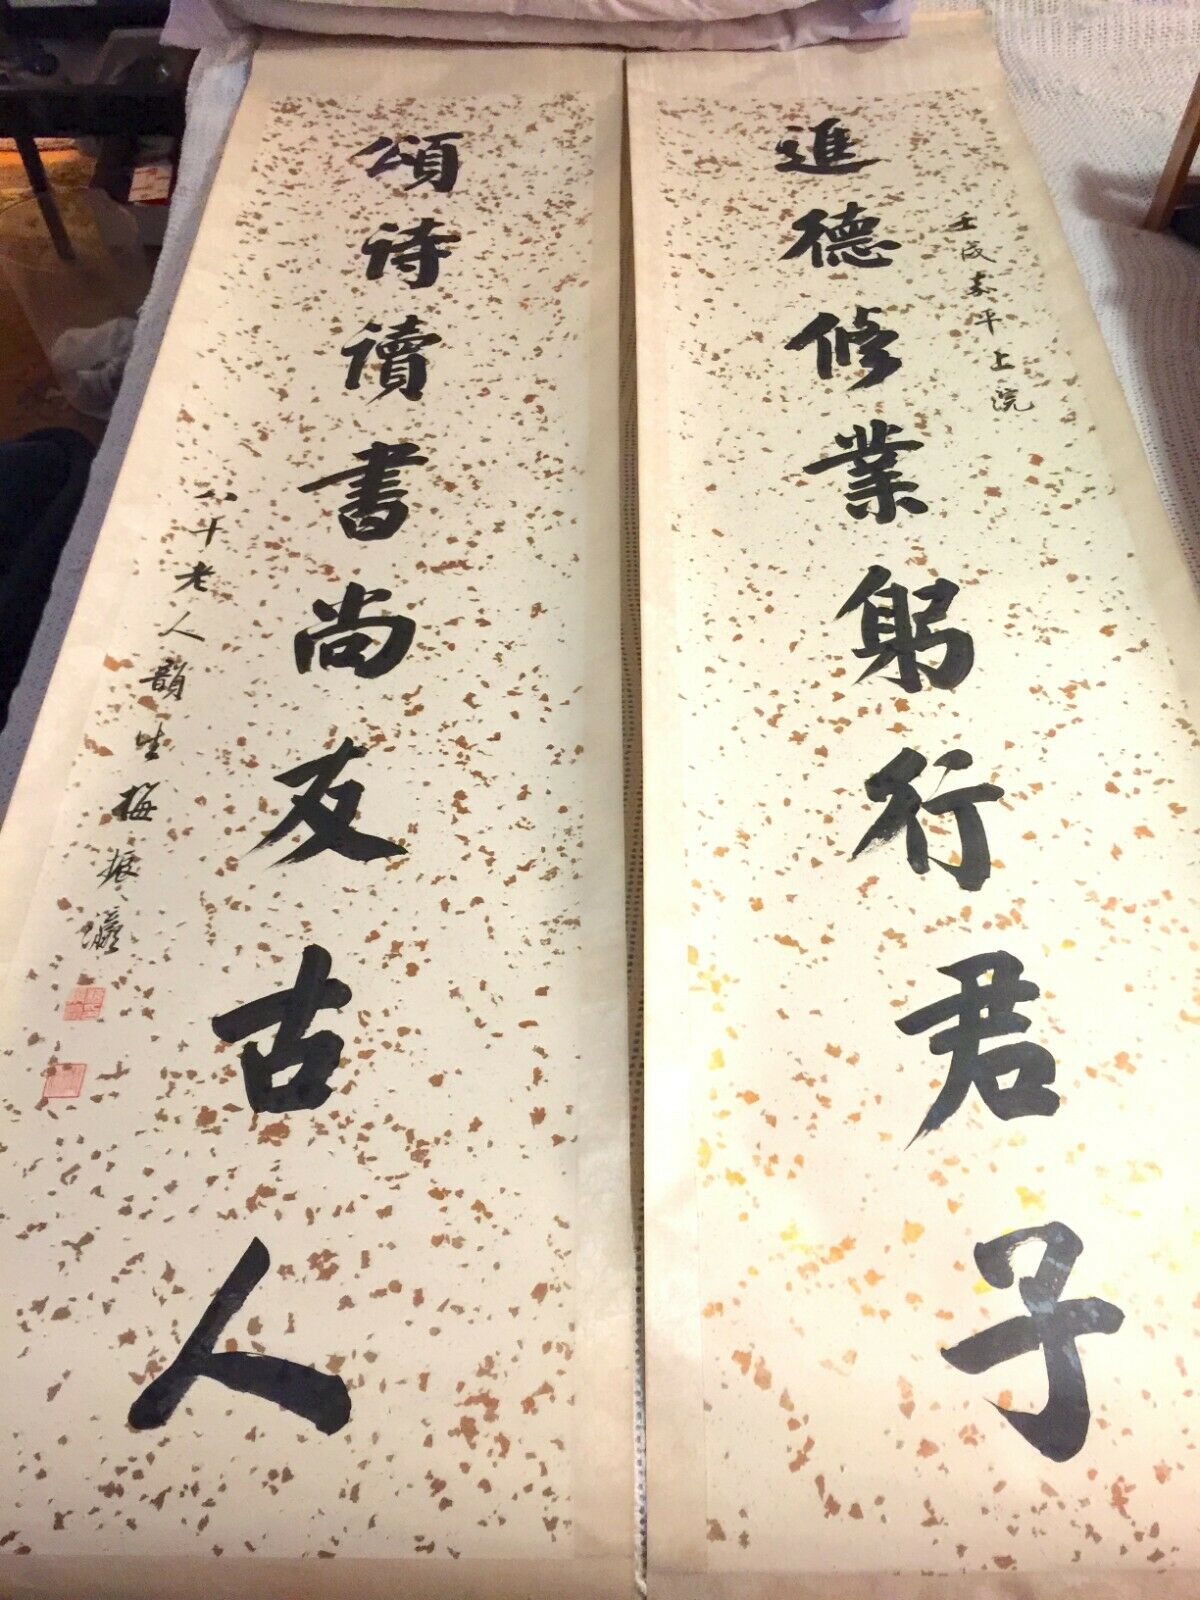 進德修業躬行君子
壬戌嘉平上浣
頌诗讀書尚友古人
八十老人韻生梅振瀛